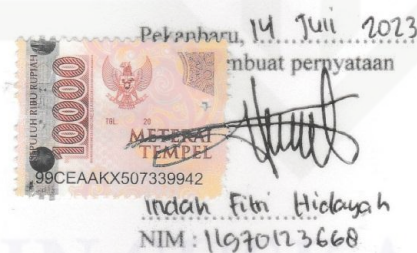 Pekanbaru, 14 Juli 2023
mbuat pernyataan
SEPULUH RIBU RUPIAH
10000
TGL. 20
METERAI
TEMPEL
99CEAAKX507339942
Indah Fitri Hidayah
NIM : 11970123668